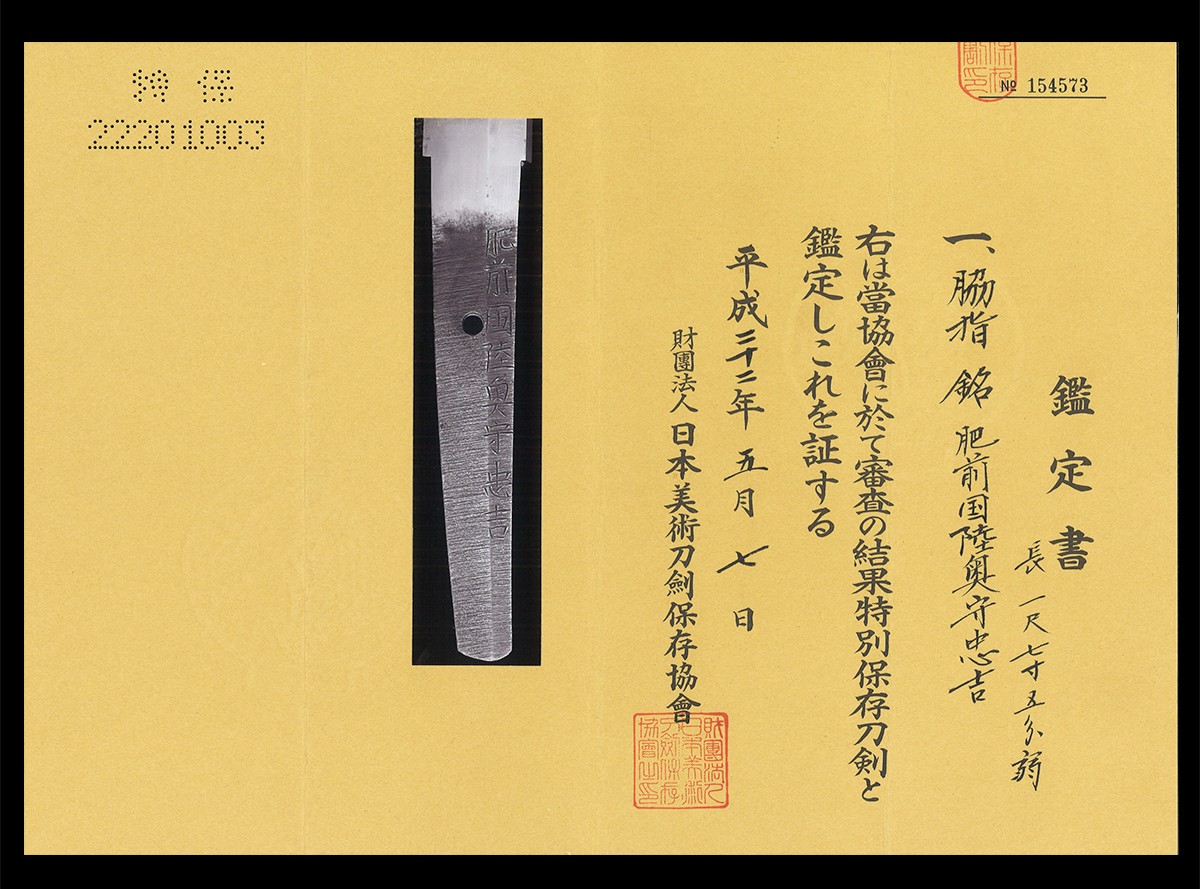 鑑定書
長一尺七寸五分弱
一、脇指 銘 肥前国陸奥守忠吉
右は當協會に於て審査の結果特別保存刀剣と
鑑定しこれを証する
平成二十二年 五月 七日
財團法人 日本美術刀劍保存協會
財團法人
日本美術
刀劍保存
協會之印
№ 154573
肥前国陸奥守忠吉
特 保
22201003